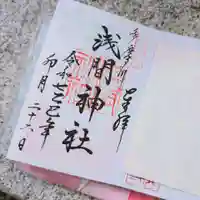 多摩川
奉拝
浅間神社
令和七乙巳年
卯月二十六日